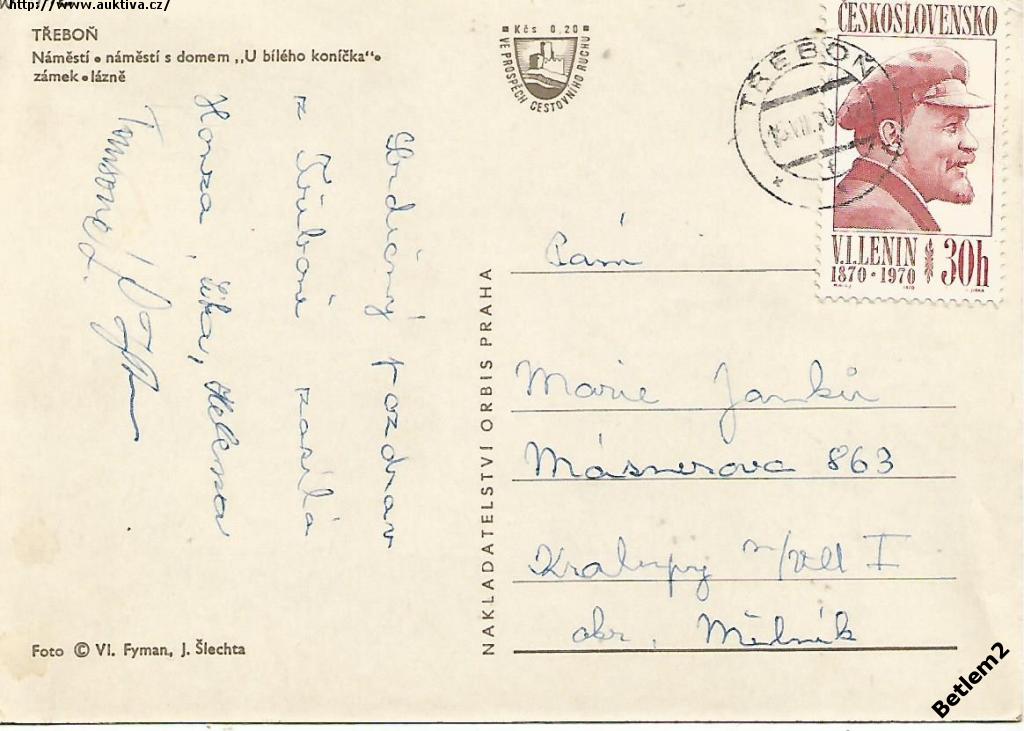 http://www.auktiva.cz/
TŘEBOŇ
Náměstí • náměstí s domem „U bílého koníčka“ •
zámek • lázně
Kčs 0,20
VE PROSPĚCH CESTOVNÍHO RUCHU
TŘEBOŇ
ČESKOSLOVENSKO
V.I.LENIN
1870 • 1970
30h
Srdečný pozdrav
z Třeboně zasílá
Honza, Jitka, Helena
NAKLADATELSTVÍ ORBIS PRAHA
Paní
Marie Janků
Másnerova 863
Kralupy n/Vlt I
okr. Mělník
Foto © Vl. Fyman, J. Šlechta
Betlem2